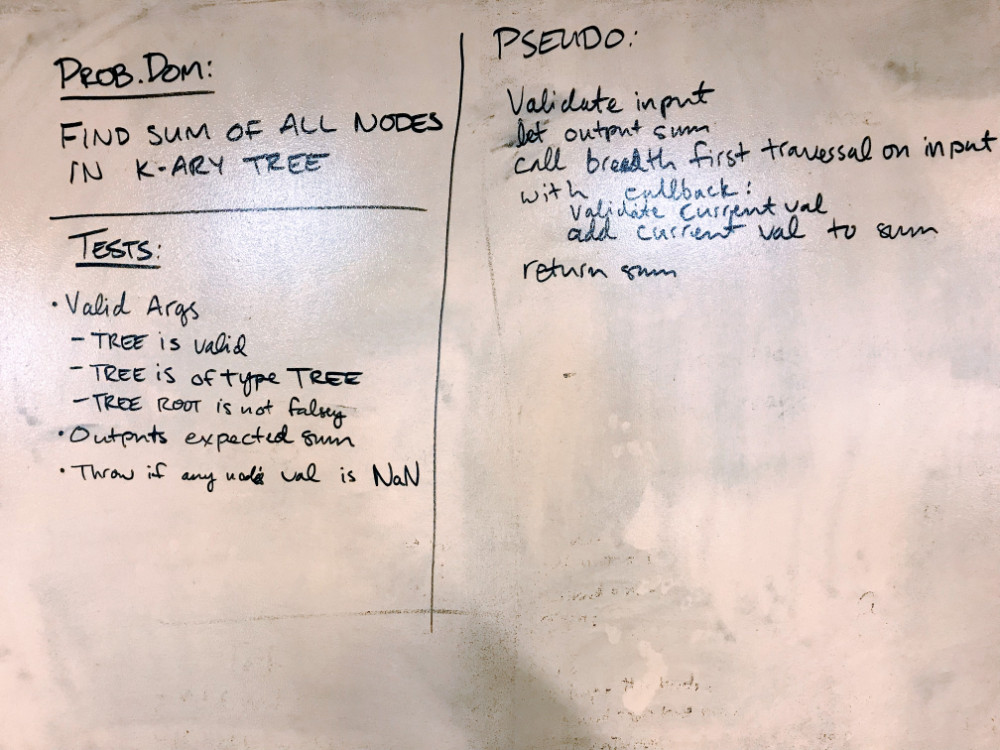 PROB. DOM:
FIND SUM OF ALL NODES
IN K-ARY TREE
TESTS:
• Valid Args
- TREE is valid
- TREE is of type TREE
- TREE ROOT is not falsey
• Outputs expected sum
• Throw if any node's val is NaN
PSEUDO:
Validate input
let output sum
call breadth first traversal on input
with callback:
validate current val
add current val to sum
return sum